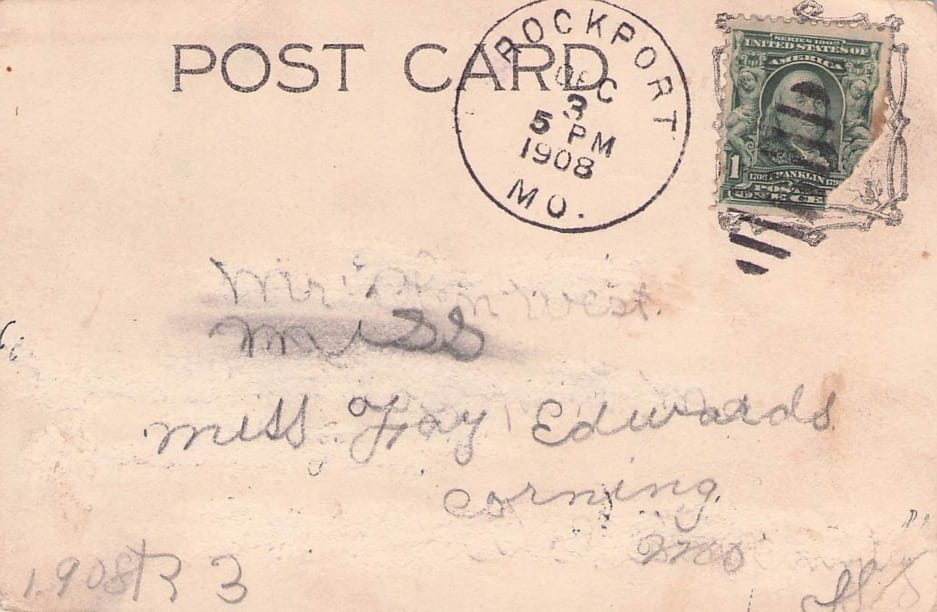 POST CARD
ROCKPORT
DEC
3
5 PM
1908
MO.
SERIES 1902
UNITED STATES OF
AMERICA
1
FRANKLIN
POST
ONE CE
Mr West
Miss
Miss Fay Edwards
Corning
Mo
1908 R 3